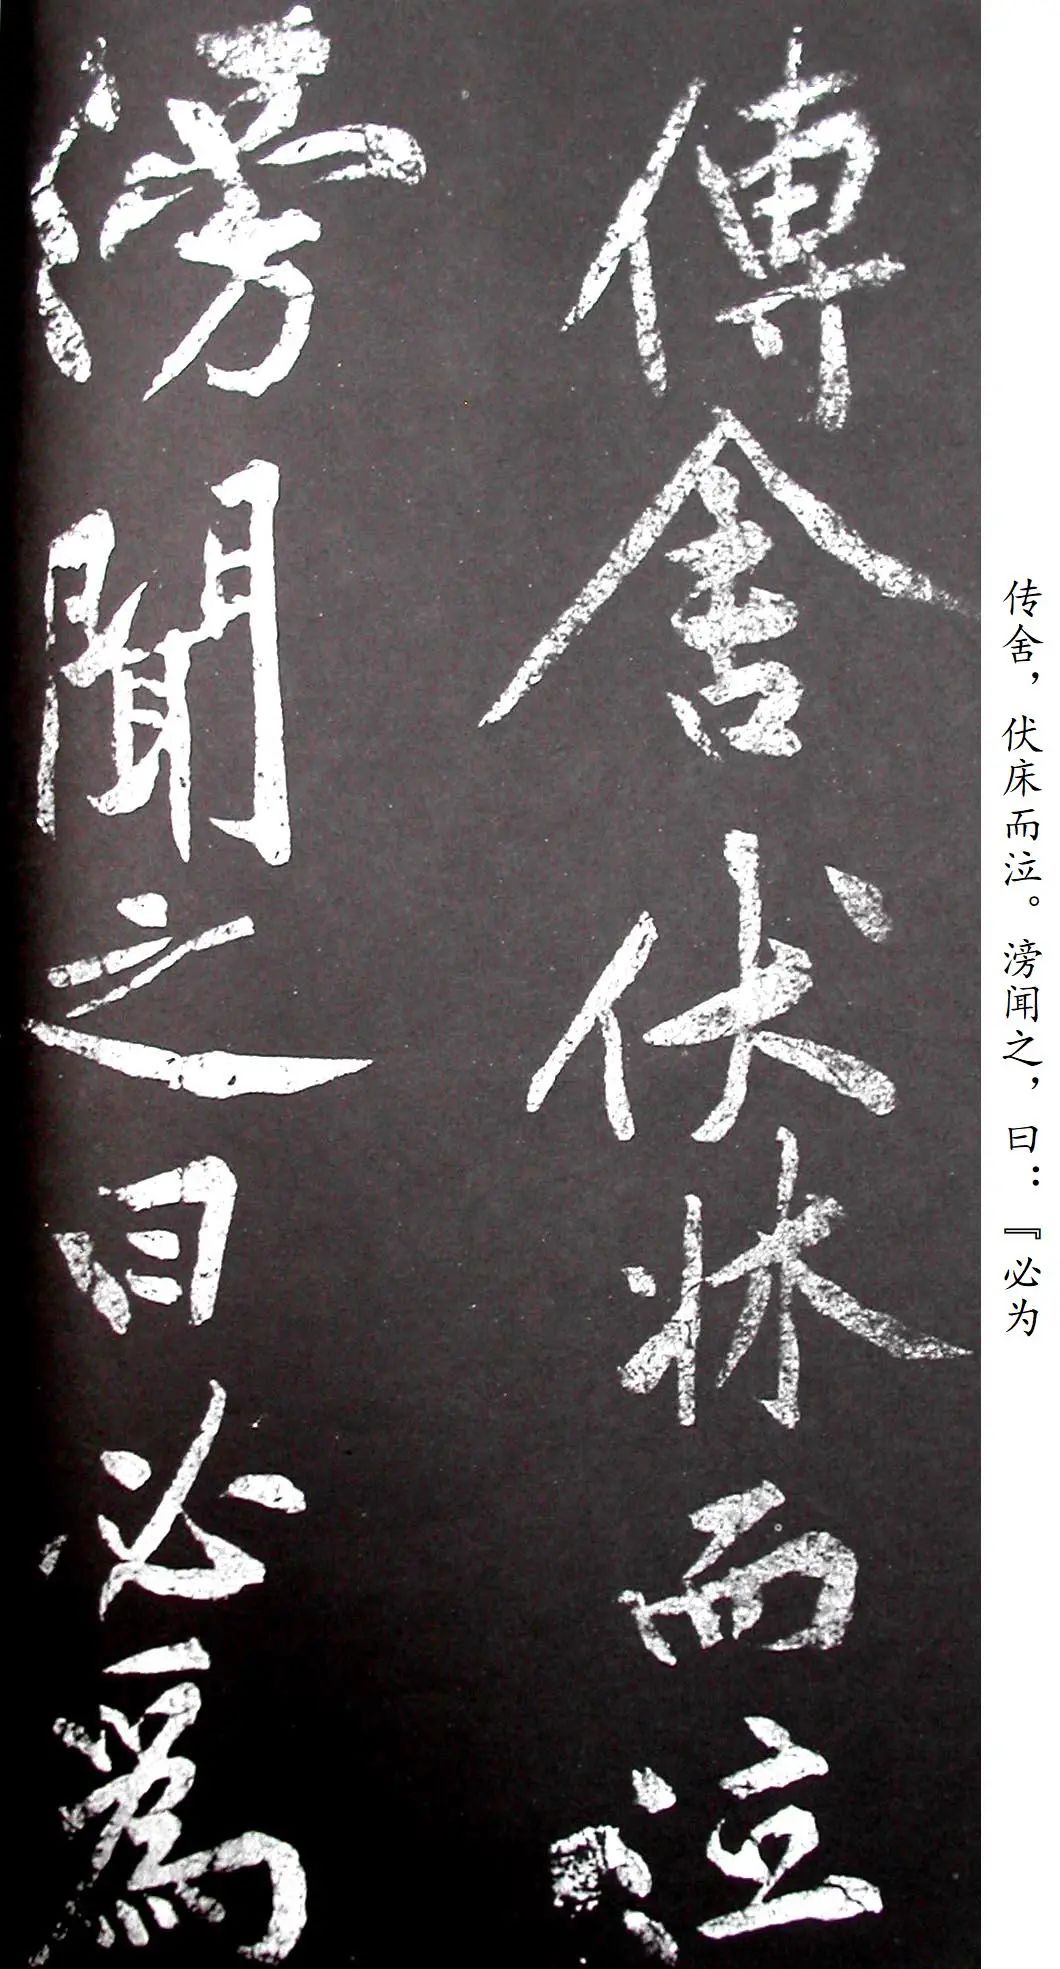 傳舍伏牀而泣
滂聞之曰必爲
传舍，伏床而泣。滂闻之，曰：『必为